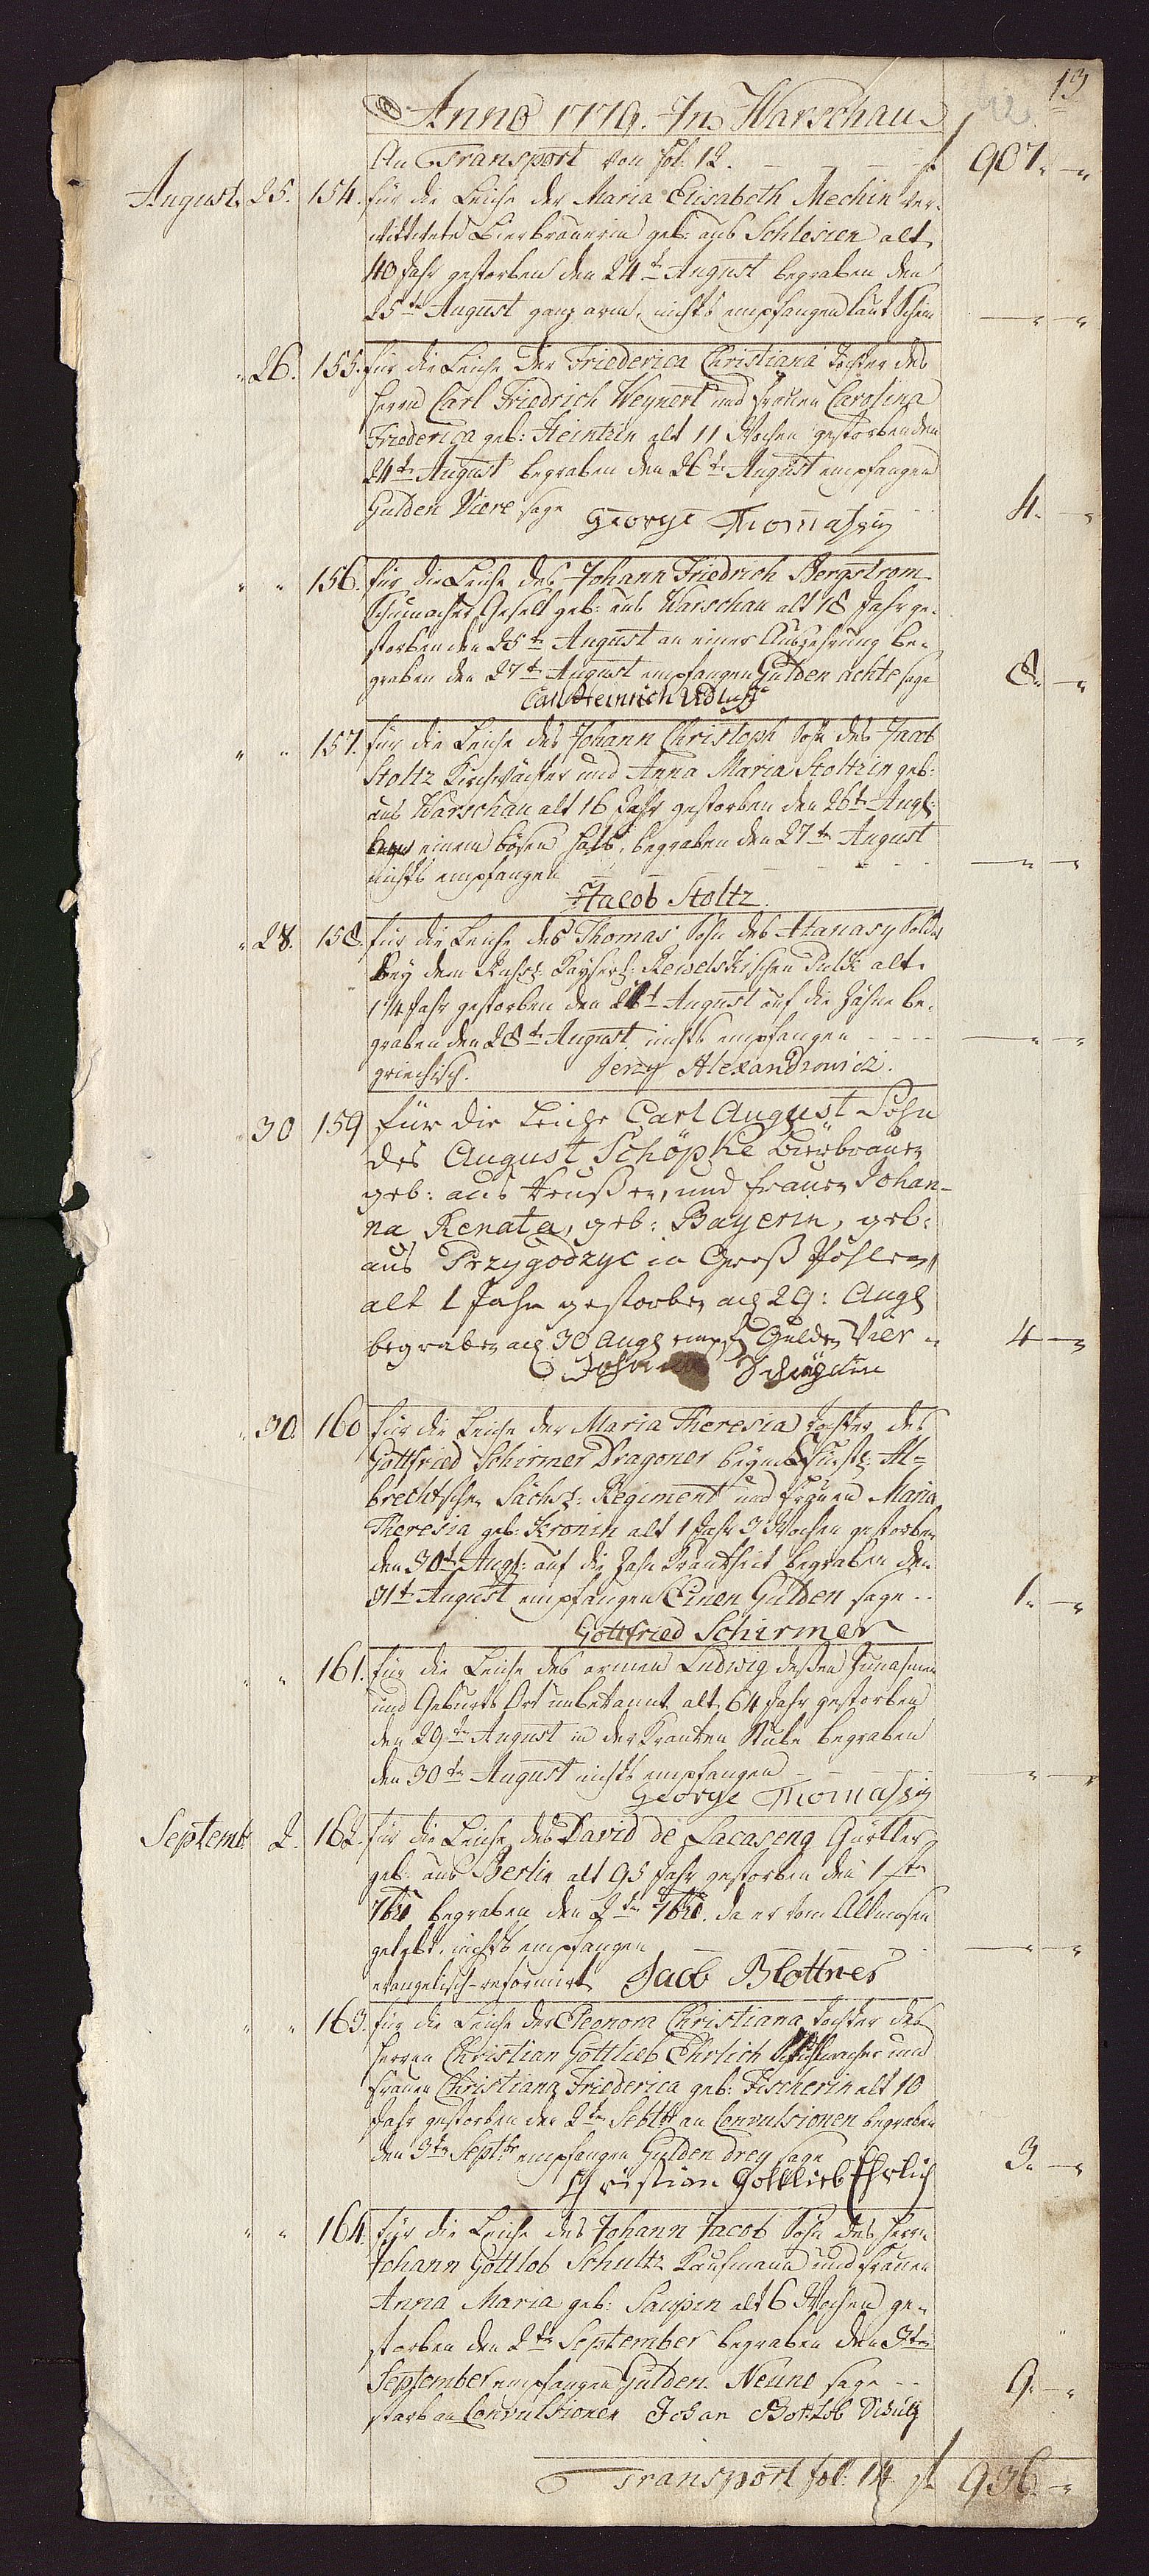 13
Anno 1779. In Warschau
An Transport von fol. 12. — — — f 907. — „
August. 25. 154. für die Leiche der Maria Elisabeth Mechin ver-
wittwete Bierbrauerin geb: aus Schlesien alt
40 Jahr gestorben den 24t August begraben den
25ten August ganz arm, nichts empfangen laut Schein — „ — „
„ 26. 155. für die Leiche der Friederica Christiana Tochter des
Herrn Carl Friedrich Weynert und Frauen Carolina
Friederica geb: Heintzin alt 11 Wochen gestorben den
24ten August begraben den 26ten August empfangen
Gulden Viere sage 4. — „
George Thomassin
„ „ 156. für die Leiche des Johann Friedrich Bergstrom
Schumacher Gesell geb: aus Warschau alt 18 Jahr ge-
storben den 25ten August an einer Auszehrung be-
graben den 27ten August empfangen Gulden achte sage 8. — „
Carl Heinrich
„ „ 157. für die Leiche des Johann Christoph Sohn des Jacob
Stoltz Kirchwächter und Anna Maria Stoltzin geb:
aus Warschau alt 16 Jahr gestorben den 26t Augt:
einem bösen Hals, begraben den 27ten August
nichts empfangen — „ — „
Jacob Stoltz.
„ 28. 158. für die Leiche des Thomas Sohn des Atanasy Soldat
bey dem Russ: Kayserl: Rewelskischen Pulk alt
1 1/4 Jahr gestorben den August auf die Zähne be-
graben den 28ten August nichts empfangen — — — „ — „
griechisch. Jerzy Alexandrowicz.
„ 30 159 für die Leiche Carl August Sohn
des August Schöpke Bierbrauer
geb: aus Preußen, und Frauen Johan-
na Renata, geb: Bayerin, geb:
aus Przygodzyc in Groß Pohlen,
alt 1 Jahr gestorben 29: Augt
begraben 30 Augt empf Gulden Vier 4 — „
„ 30. 160 für die Leiche der Maria Theresia Tochter des
Gottfried Schirmer Dragoner beym Fürstl: Al=
brechtschen Sächs: Regiment und Frauen Maria
Theresia geb: Kronin alt 1 Jahr 3 Wochen gestorben
den 30t Augt: auf die Zahn Krankheit begraben den
31t August empfangen Einen Gulden sage -- 1. — „
Gottfried Schirmer
„ „ 161. für die Leiche des armen Ludwig deßen Zunahmen
und Geburts Ort unbekannt alt 64 Jahr gestorben
den 29ten August in der Kranken Stube begraben
den 30ten August nichts empfangen — „ — „
George Thomassin
Septemb. 2. 162. für die Leiche des David de Lacaseng Gürtler
geb: aus Berlin alt 95 Jahr gestorben den 1sten
7br begraben den 2ten 7br. da er vom Allmosen
gelebt, nichts empfangen — „ — „
evangelisch-reformirt Jacob Blottner
„ „ 163. für die Leiche der Eleonora Christiana Tochter des
Herren Christian Gottlieb Ehrlich und
Frauen Christiana Friederica geb: Fischerin alt 10
Jahr gestorben den 2ten Sebtbr an Convulsionen begraben
den 3ten Septbr empfangen Gulden drey sage 3. — „
Christian Gottlieb Ehrlich
„ „ 164. für die Leiche des Johann Jacob Sohn des Herrn
Johann Gottlob Schultz Kaufmann und Frauen
Anna Maria geb: Saupin alt 6 Wochen ge-
storben den 2ten September begraben den 3ten
September empfangen Gulden Neune sage -- 9. — „
starb an Convulsionen Johan Gottlob Schultz
Transport fol: 14 f 936. — „